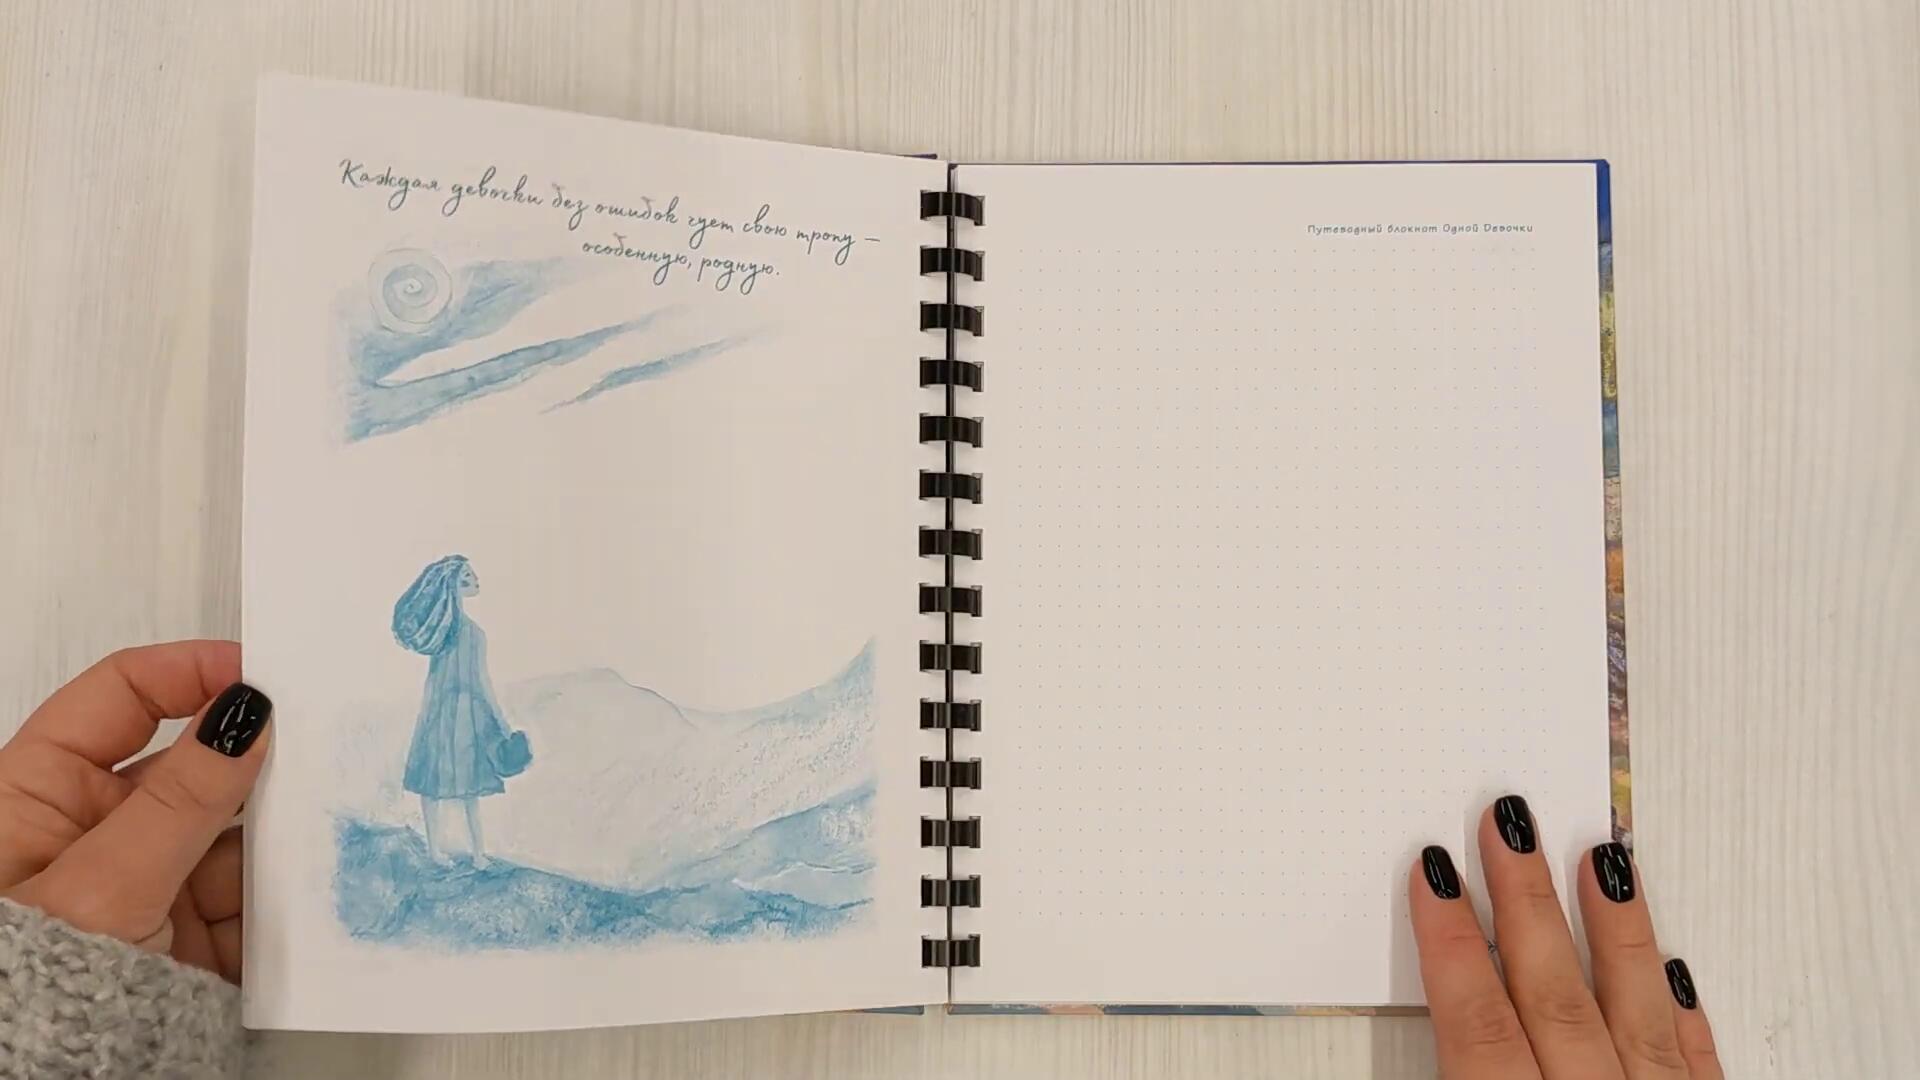 Каждая девочки без ошибок чует свою тропу —
особенную, родную.
Путеводный блокнот Одной Девочки